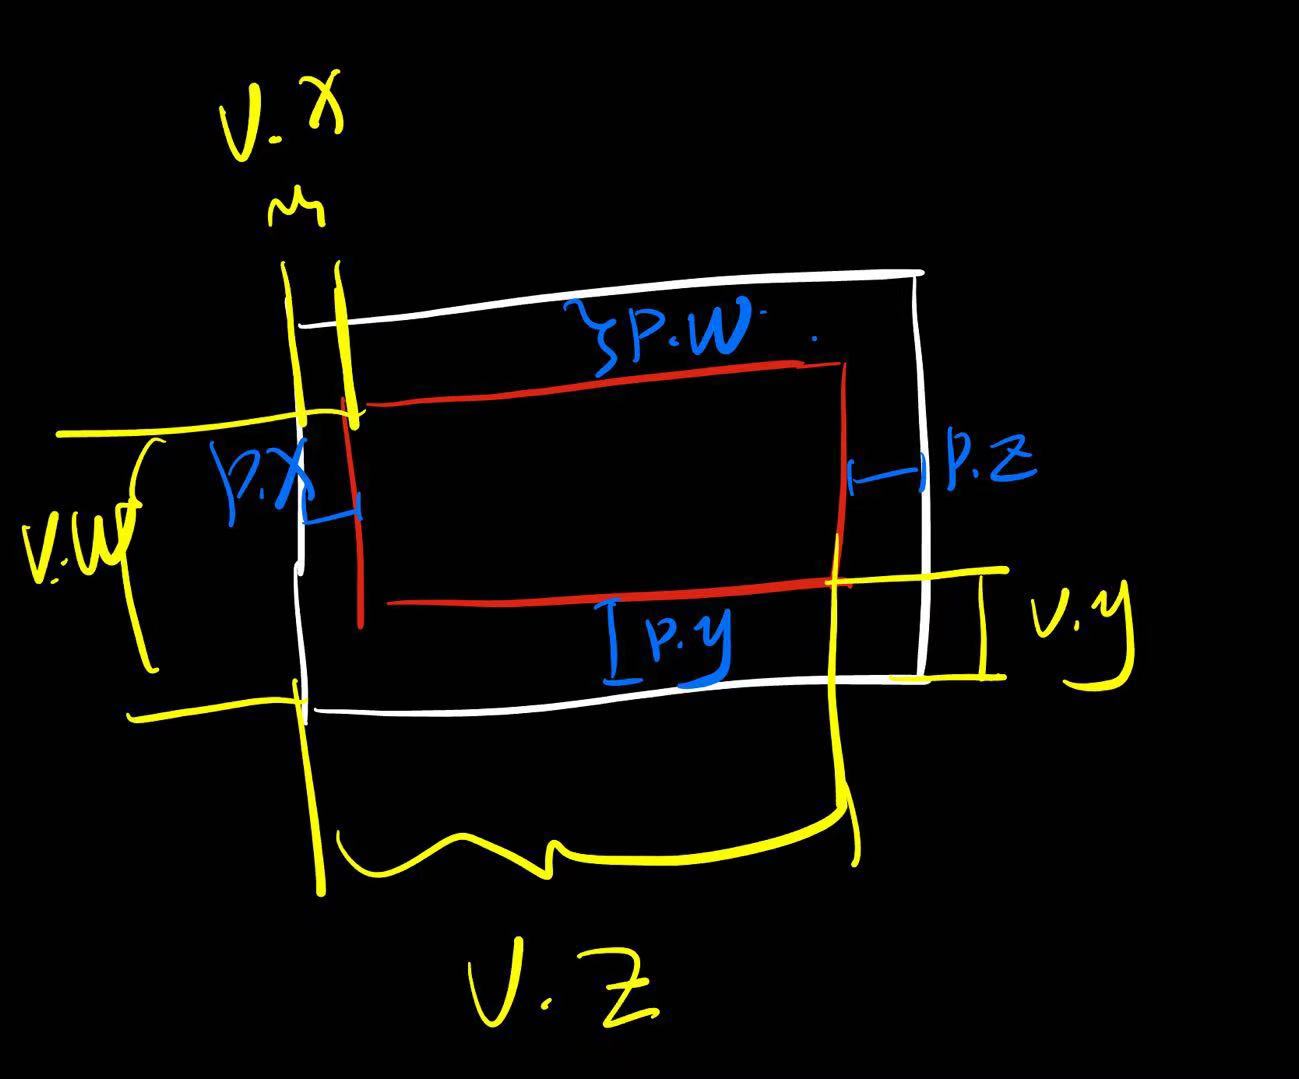 v.x
p.w
p.x
p.z
v.w
v.y
p.y
v.z